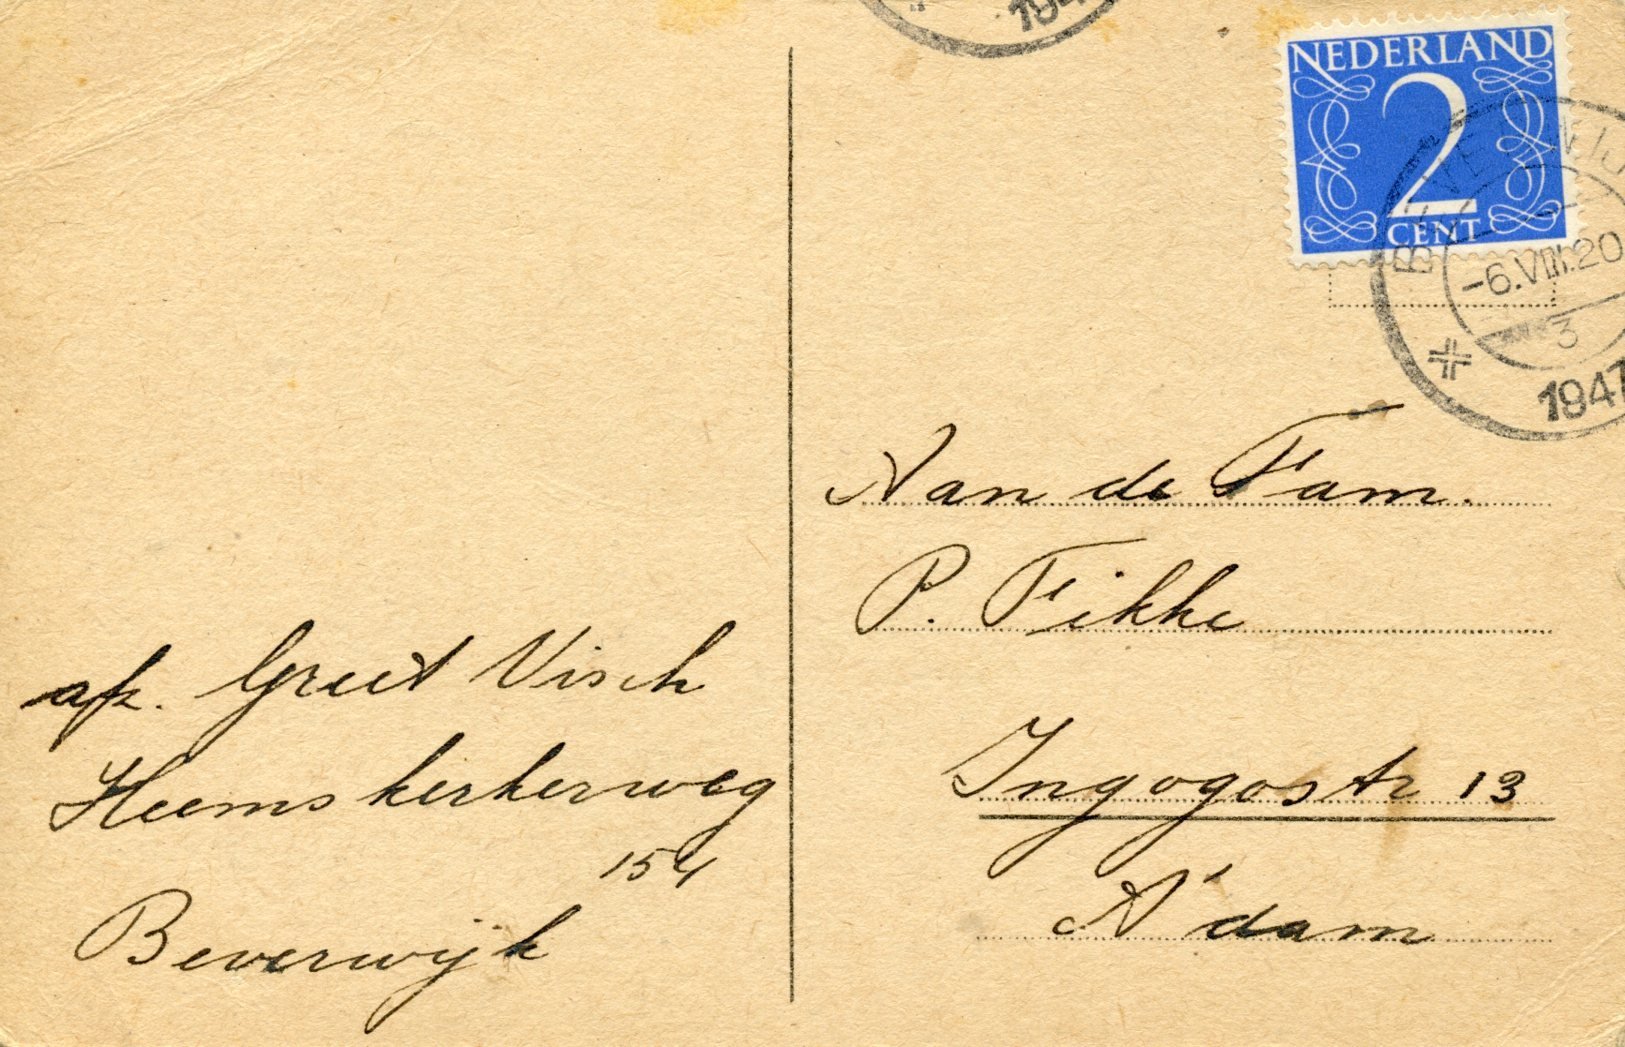 194
NEDERLAND
2
CENT
BEVERWIJ
-6.VIII.20
3
1947
Aan de Fam.
P. Fikke
Ingogostr 13
A'dam
afz. Greet Visch
Heemskerkerweg
154
Beverwijk